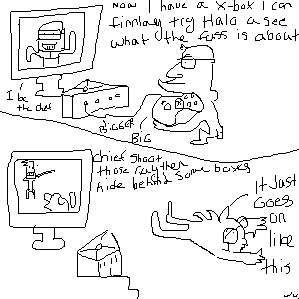 now I have a x-box I can
finnlay try Halo a see
what the fuss is about
I be
the chef
BIGGER
BIG
chief shoot
those ray then
hide behind some boxes
It Just
Goes
on
like
this